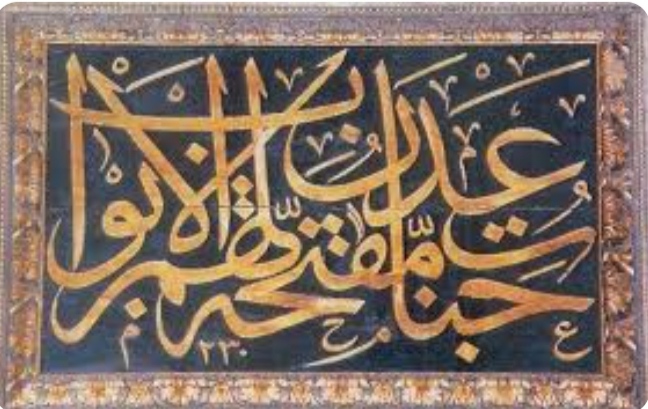 جنات عدن مفتحة لهم الابواب
٢٣٠